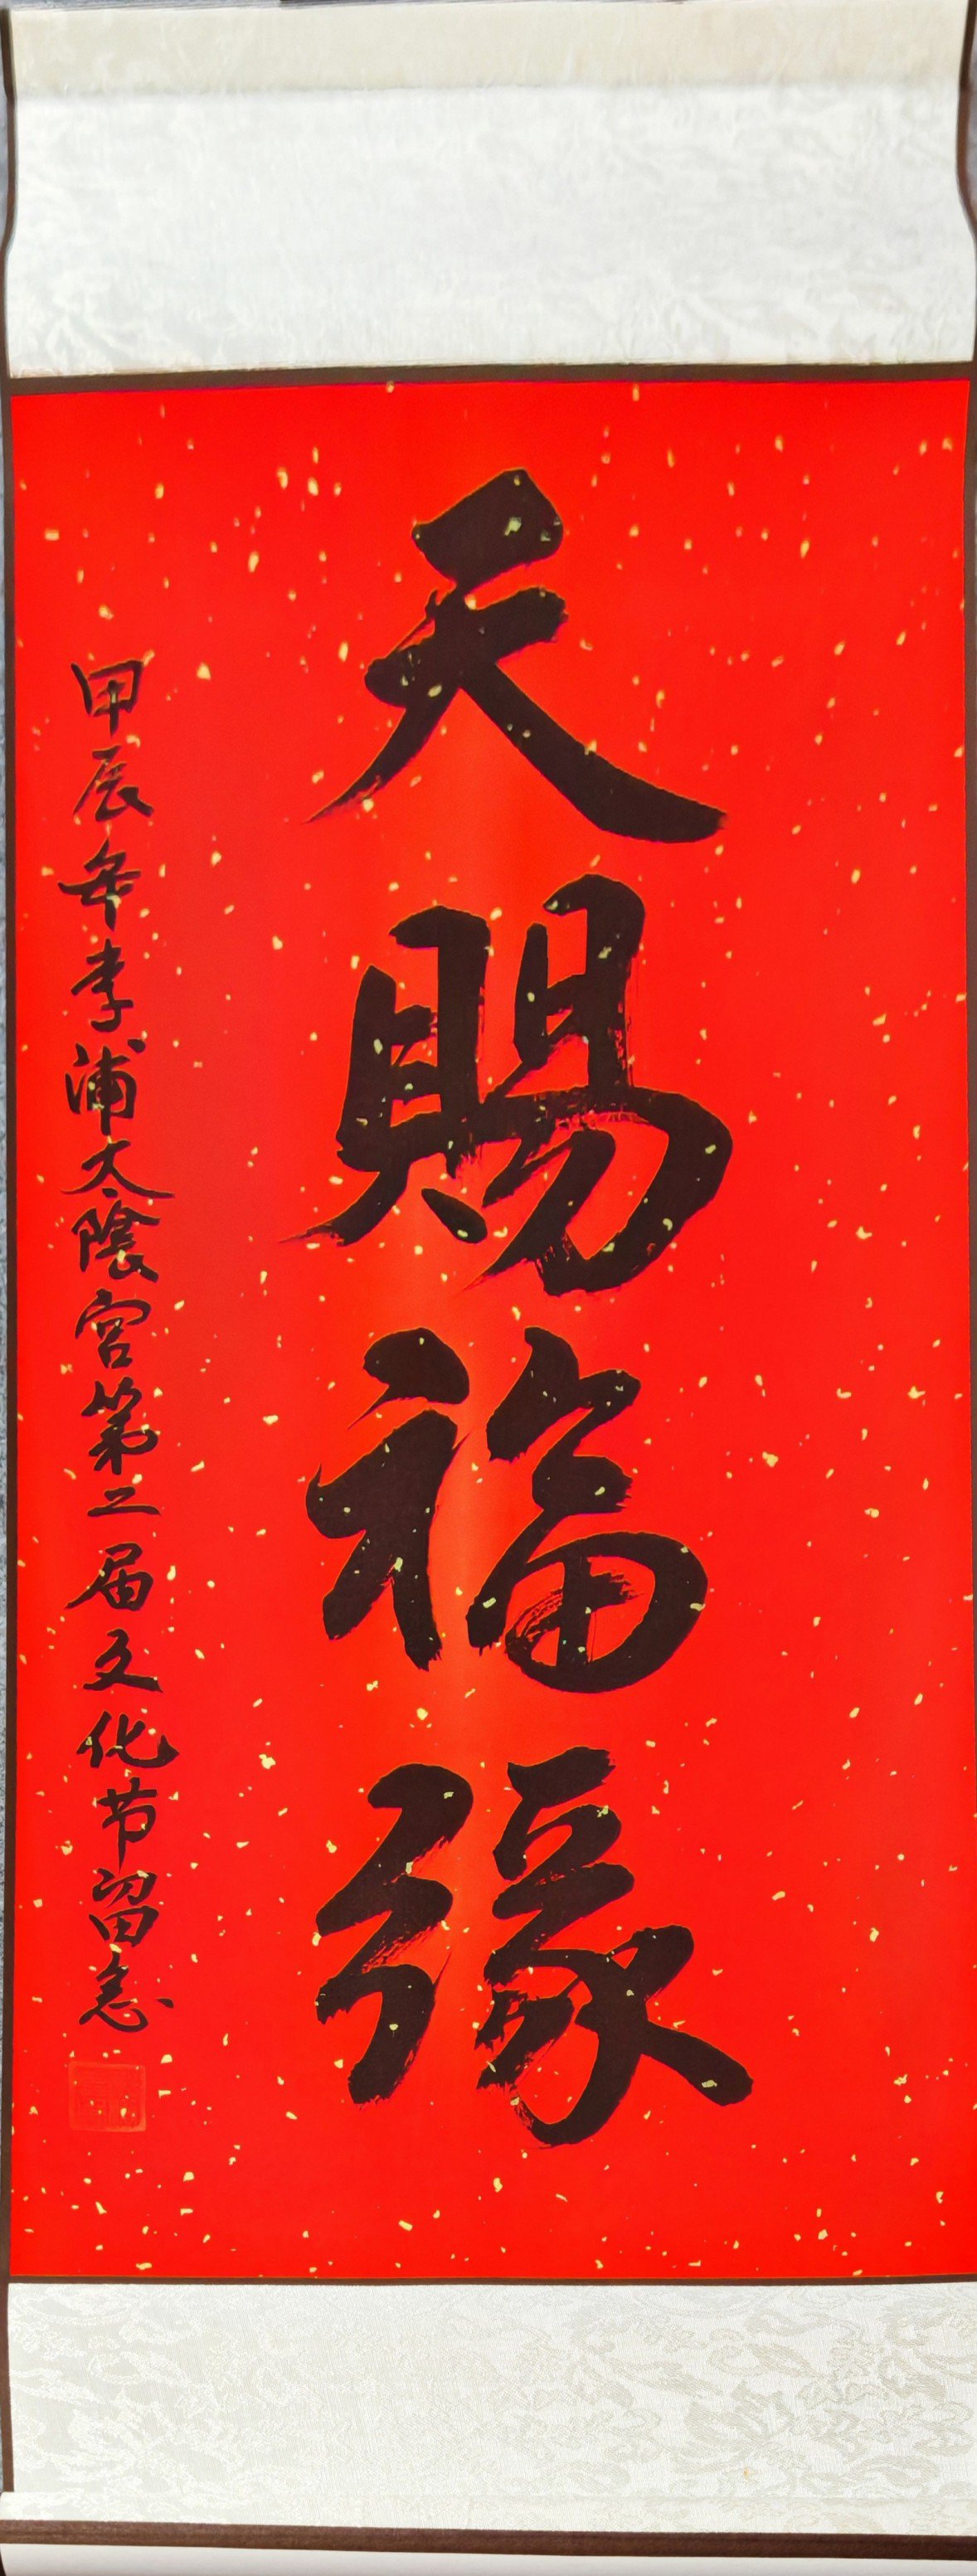 天賜福緣
甲辰年李浦太陰宫第二届文化节留念